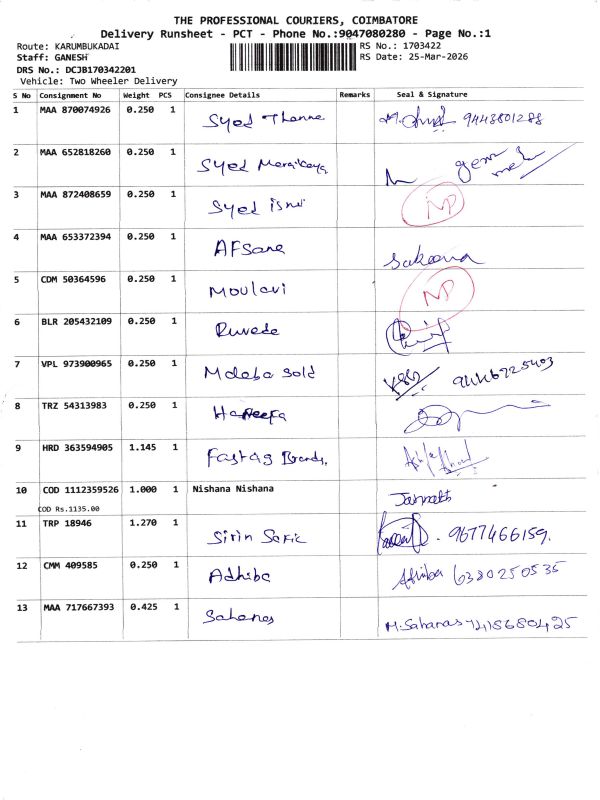 THE PROFESSIONAL COURIERS, COIMBATORE
Delivery Runsheet - PCT - Phone No.:9047080280 - Page No.:1
Route: KARUMBUKADAI RS No.: 1703422
Staff: GANESH RS Date: 25-Mar-2026
DRS No.: DCJB170342201
Vehicle: Two Wheeler Delivery
S No Consignment No Weight PCS Consignee Details Remarks Seal & Signature
1 MAA 870074926 0.250 1 Syed 9443801288
2 MAA 652818260 0.250 1 Syed
3 MAA 872408659 0.250 1 Syed NP
4 MAA 653372394 0.250 1 AFSana Sakeena
5 CDM 50364596 0.250 1 Moulavi NP
6 BLR 205432109 0.250 1
7 VPL 973900965 0.250 1 sold
8 TRZ 54313983 0.250 1 Haneefa
9 HRD 363594905 1.145 1 Fastag Brands,
10 COD 1112359526 1.000 1 Nishana Nishana
COD Rs.1135.00
11 TRP 18946 1.270 1 9677466159.
12 CMM 409585 0.250 1 Adhiba Adhiba 6380250535
13 MAA 717667393 0.425 1 Sahanas M.Sahanas